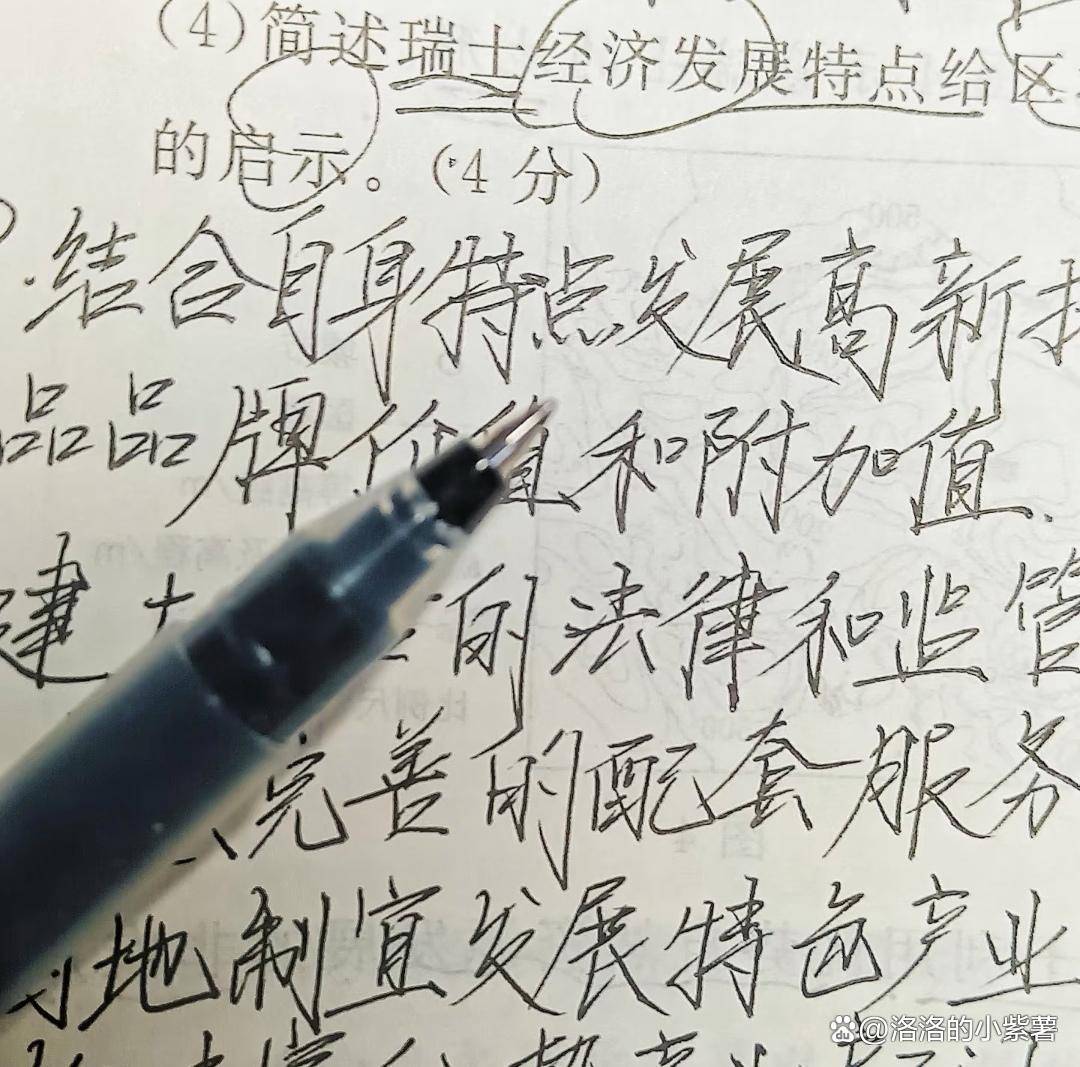 (4)简述瑞士经济发展特点给区
的启示。(4分)
结合自身特点发展高新技
品品牌价值和附加值.
建 的法律和监管
完善的配套服务
地制宜发展特色产业
@洛洛的小紫薯